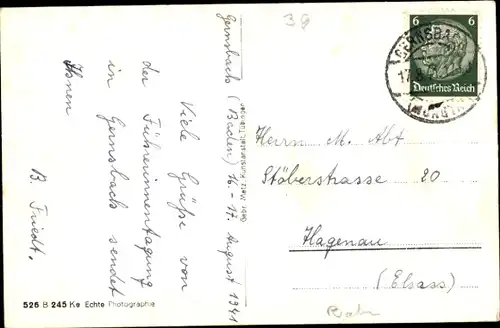 39
Gernsbach (Baden) 16.-17. August 1941
Viele Grüße von
der Führerinnentagung
in Gernsbach sendet
Ihnen
B. Friedt.
526 B 245 Ke Echte Photographie
Gebr. Metz, Kunstanstalt, Tübingen
6 6
Deutsches Reich
GERNSBACH
(MURGTAL)
Herrn M. Abt
Stöberstrasse 20
Hagenau
(Elsass)